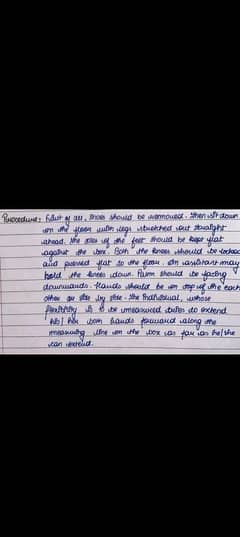 Procedure: First of all, shoes should be removed. Then sit down
on the floor with legs stretched out straight
ahead. The soles of the feet should be kept flat
against the box. Both the knees should be locked
and pressed flat to the floor. An assistant may
hold the knees down. Palm should be facing
downwards. Hands should be on top of the each
other or side by side. The individual, whose
flexibility is to be measured to extend
his/her both hands forward along the
measuring line on the box as far as he/she
can extend.